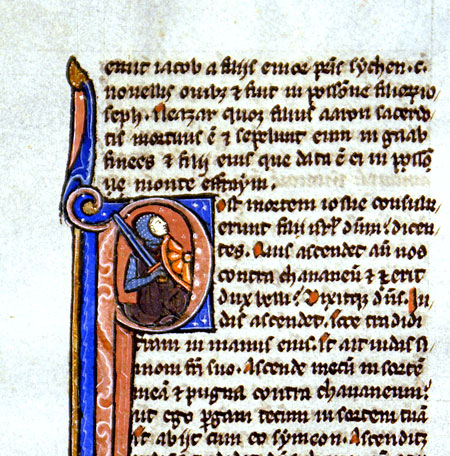 erat iacob a filiis emor p̄ris sychen . c.
nouellis ouibꝫ ⁊ fuit in possōne filiorꝫ io
seph. Eleazar quoꝫ filius aaron sacerdo
tis mortuus ē ⁊ sepelunt eum in gaab
finees ⁊ filii eius que data ē ei in possō
ne monte effraym.
Post mortem iosue consulu
erunt filii isrl̄ dn̄m dicen
tes. Quis ascendet an̄ nos
contra chananeū ⁊ erit
dux belli? Dixitqꝫ dn̄s. Iu
das ascendet. ecce tradidi
terram in manus eius. Et ait iudas si
moni fr̄i suo. Ascende mecū in sortē
meā ⁊ pugna contra chananeum?
ut ego ꝑgam tecum in sortem tuā
Et abiit cum eo symeon. Ascenditqꝫ